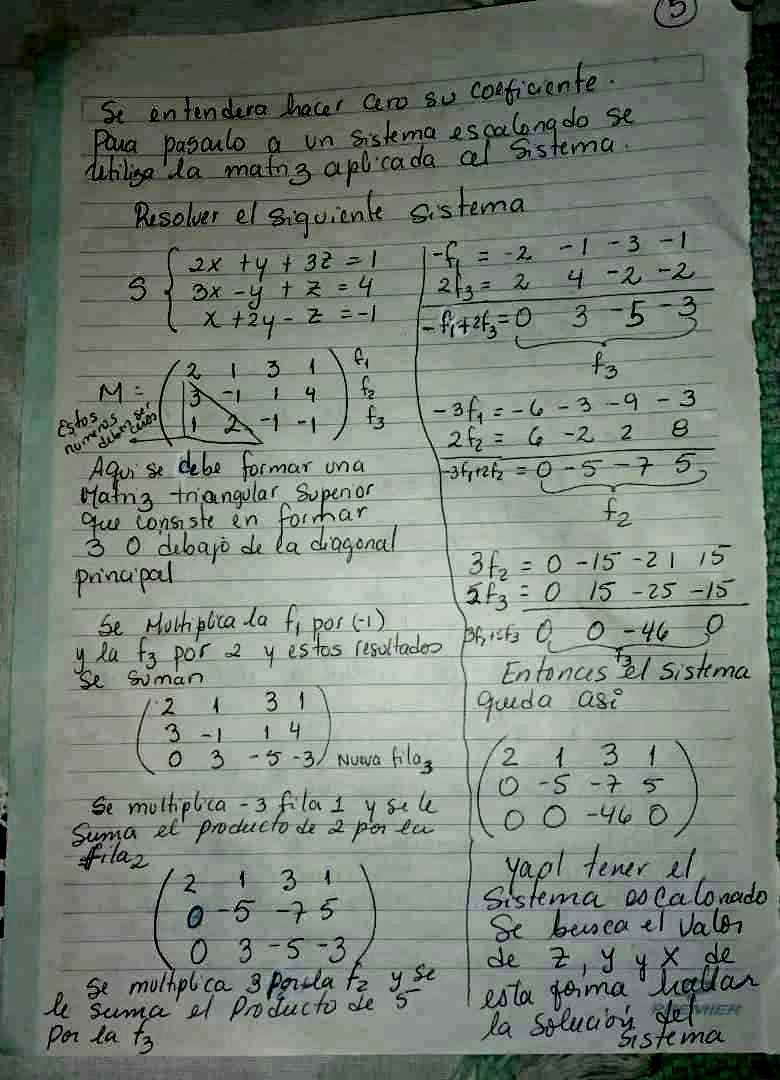 5
Se entendera hacer cero su coeficiente.
Para pasarlo a un sistema escalonado se
utiliza la matriz aplicada al sistema.
Resolver el siguiente sistema
S { 2x + y + 3z = 1
3x - y + z = 4
x + 2y - z = -1
M = ( 2 1 3 1 ) f₁
3 -1 1 4 f₂
1 2 -1 -1 f₃
Estos
numeros
deben ser
ceros
Aqui se debe formar una
Matriz triangular Superior
que consiste en formar
3 0 debajo de la diagonal
principal
Se Multiplica la f₁ por (-1)
y la f₃ por 2 y estos resultados
se suman
2 1 3 1
3 -1 1 4
0 3 -5 -3 Nueva fila₃
Se multiplica -3 fila 1 y se le
suma el producto de 2 por la
fila₂
2 1 3 1
0 -5 -7 5
0 3 -5 -3
Se multiplica 3 por la f₂ y se
le suma el Producto de 5
por la f₃
-f₁ = -2 -1 -3 -1
2f₃ = 2 4 -2 -2
-f₁+2f₃ = 0 3 -5 -3
f₃
-3f₁ = -6 -3 -9 -3
2f₂ = 6 -2 2 8
-3f₁+2f₂ = 0 -5 -7 5
f₂
3f₂ = 0 -15 -21 15
5f₃ = 0 15 -25 -15
3f₂+5f₃ 0 0 -46 0
f₃
Entonces el sistema
queda asi
2 1 3 1
0 -5 -7 5
0 0 -46 0
y al tener el
sistema escalonado
se busca el valor
de z, y y x de
esta forma hallar
la solución del
sistema